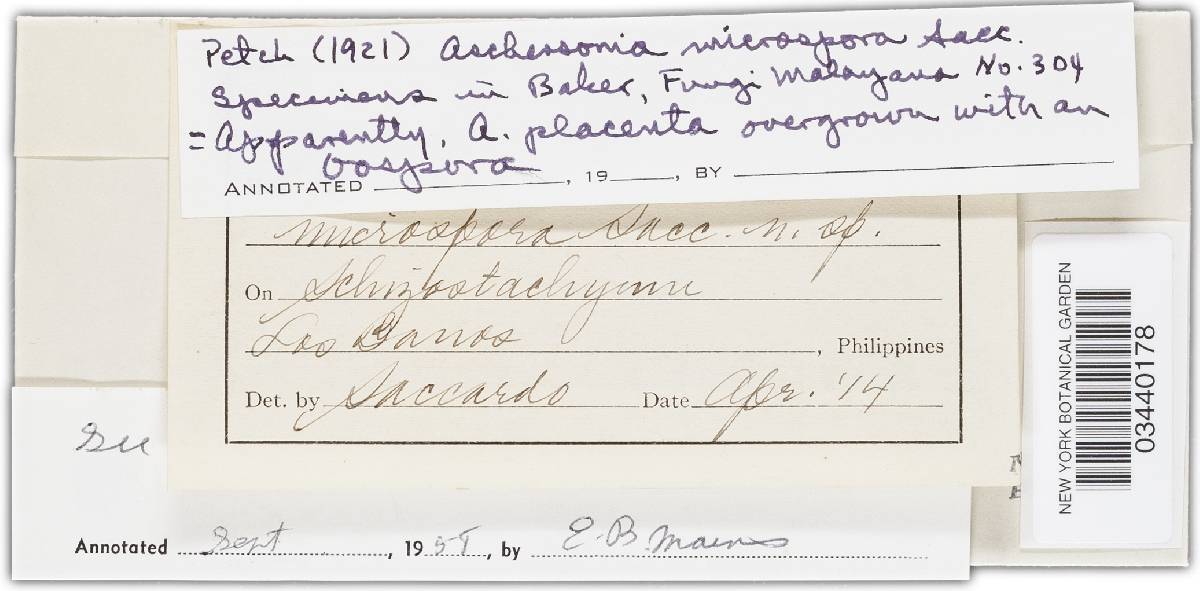 Petch (1921) Aschersonia microspora Sacc.
Specimens in Baker, Fungi Malayana No. 304
= Apparently, A. placenta overgrown with an
Oospora
ANNOTATED , 19 , BY
microspora Sacc. n. sp.
On Schizostachyum
Los Banos , Philippines
Det. by Saccardo Date Apr. '14
See
Annotated Sept , 19 , by E. B. Mains
NEW YORK BOTANICAL GARDEN
03440178